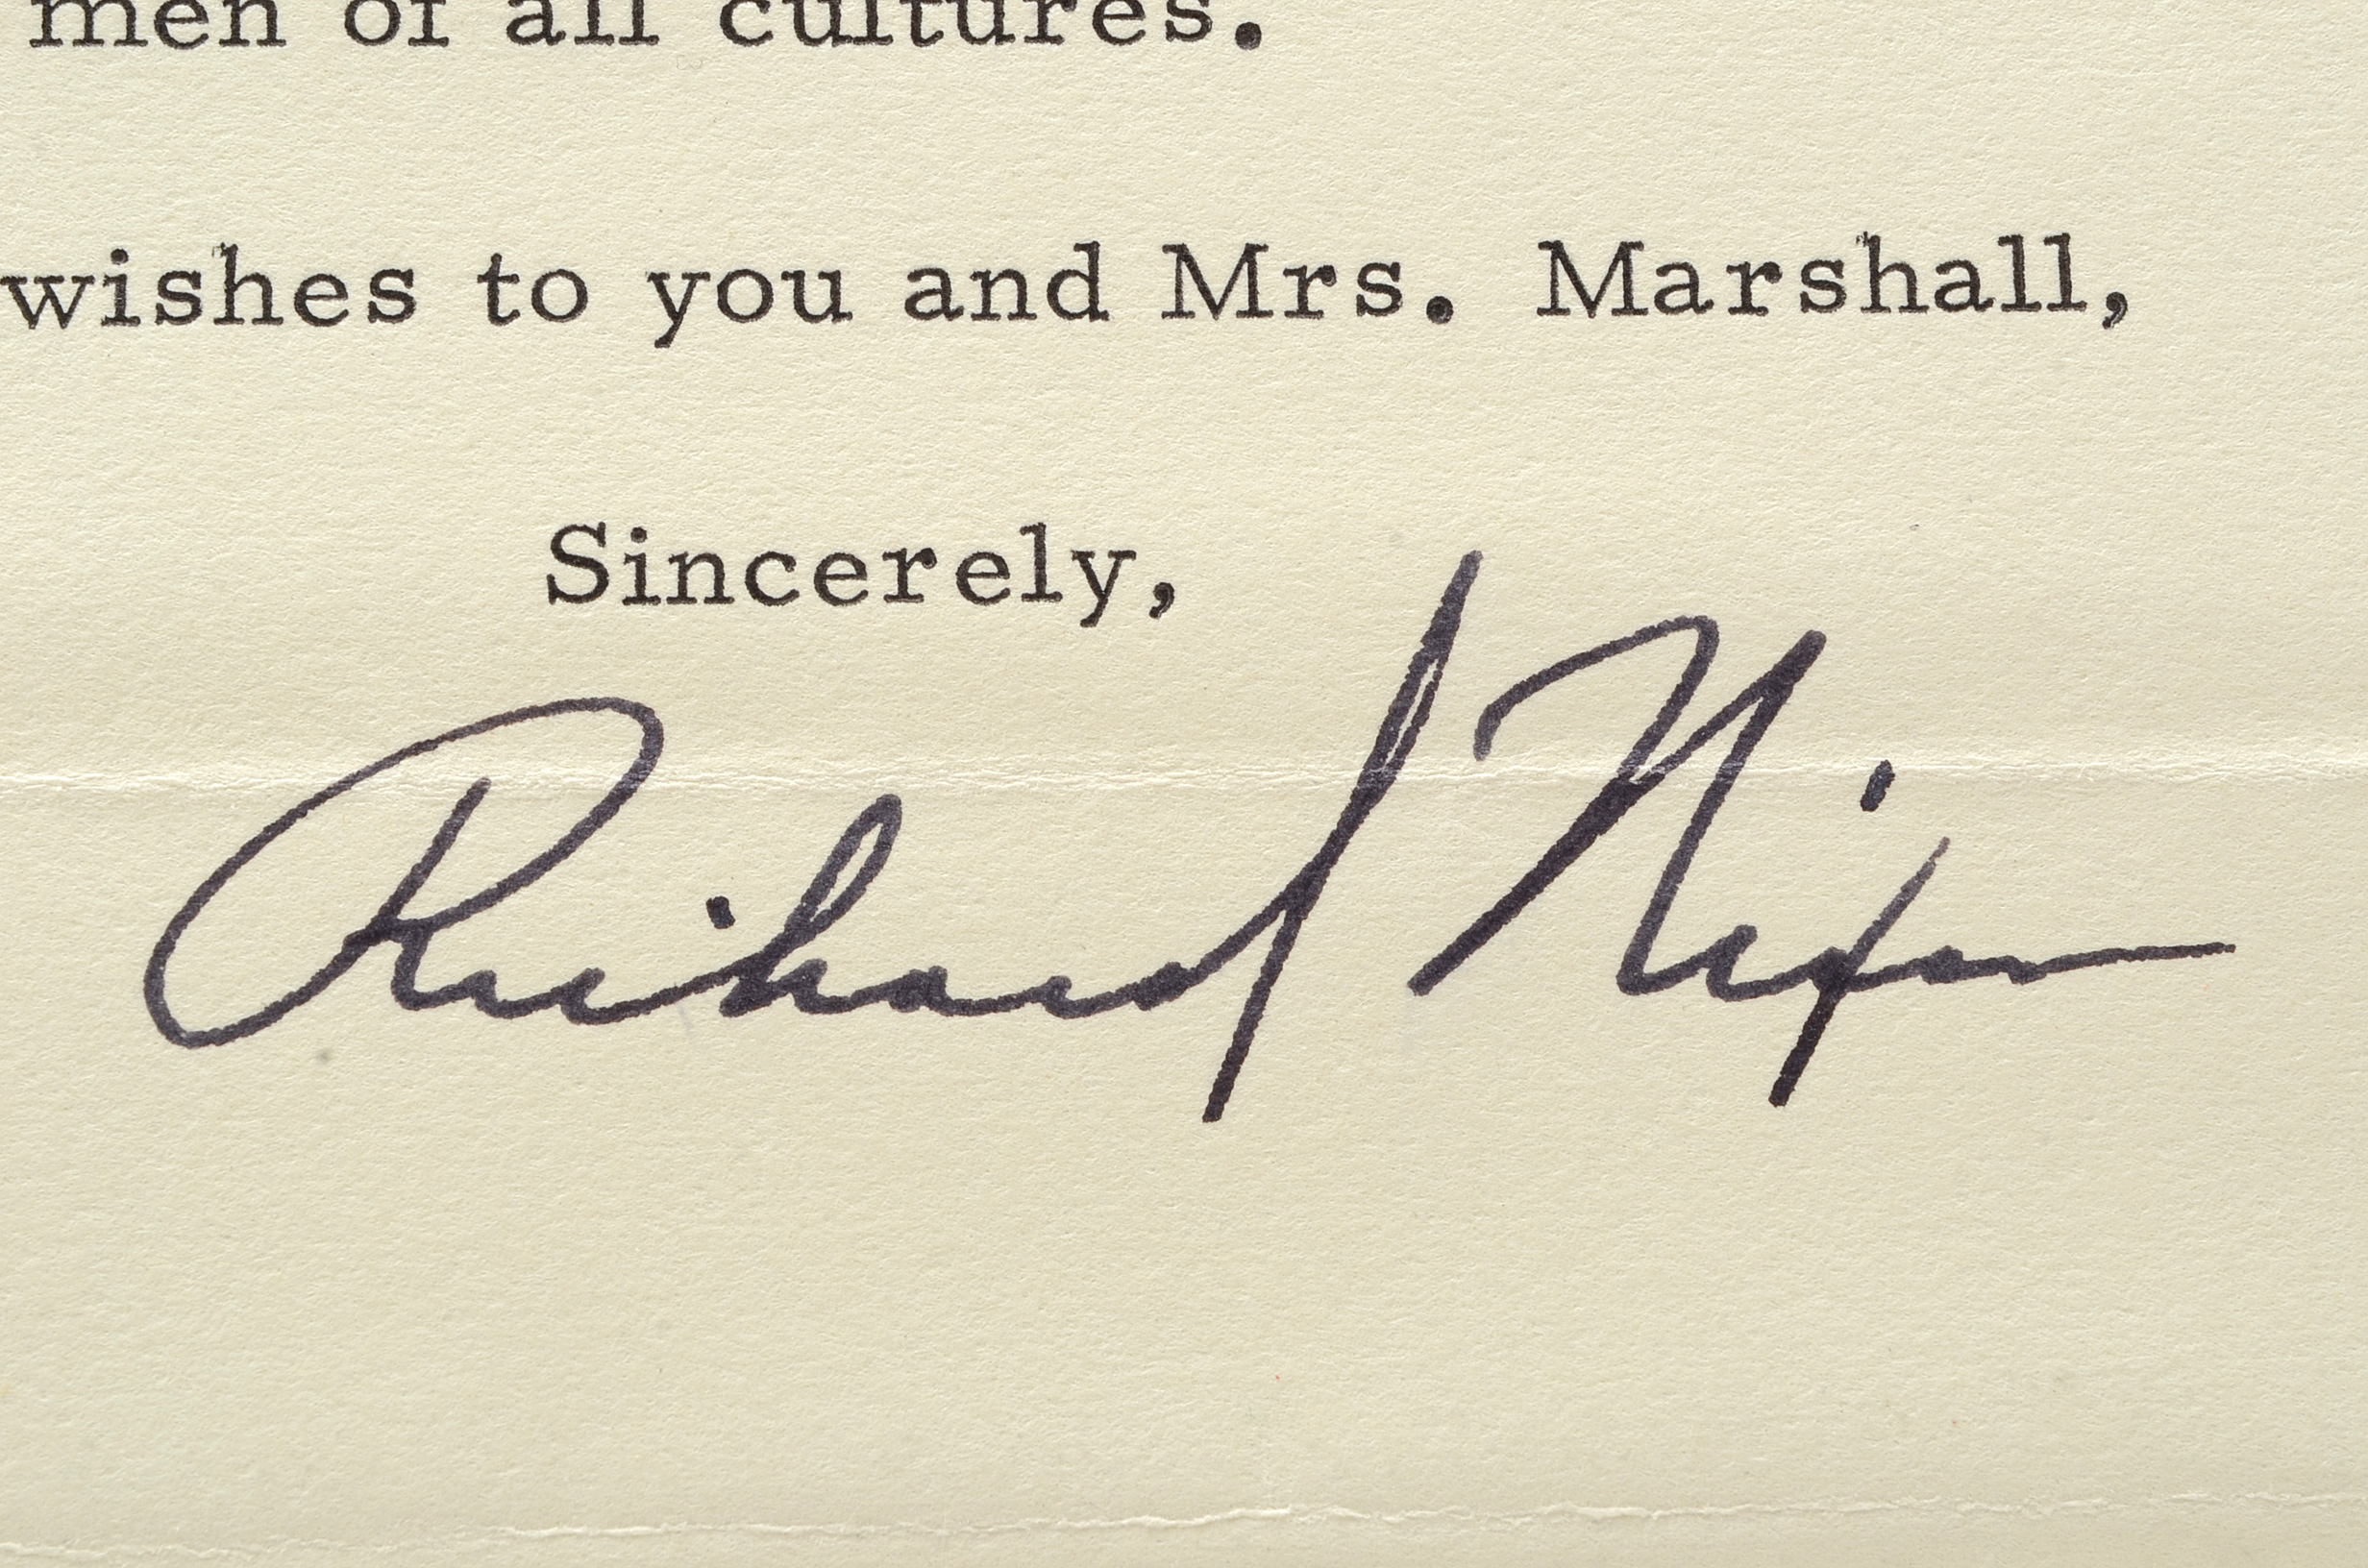 men of all cultures.
wishes to you and Mrs. Marshall,
Sincerely,
Richard Nixon